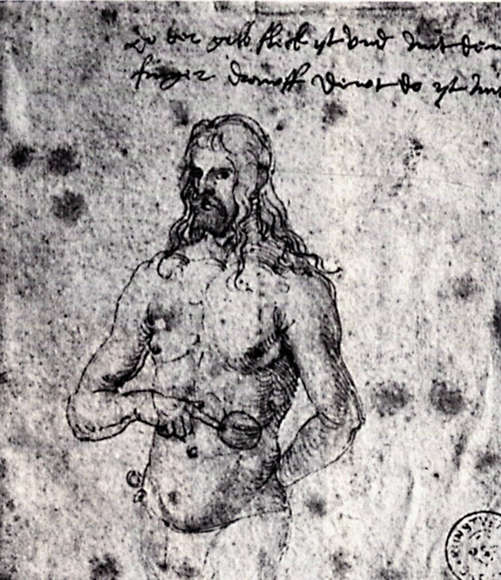 Do der gelb fleck ist vnd mit de
finger drawff dewt do ist
KUNSTVE